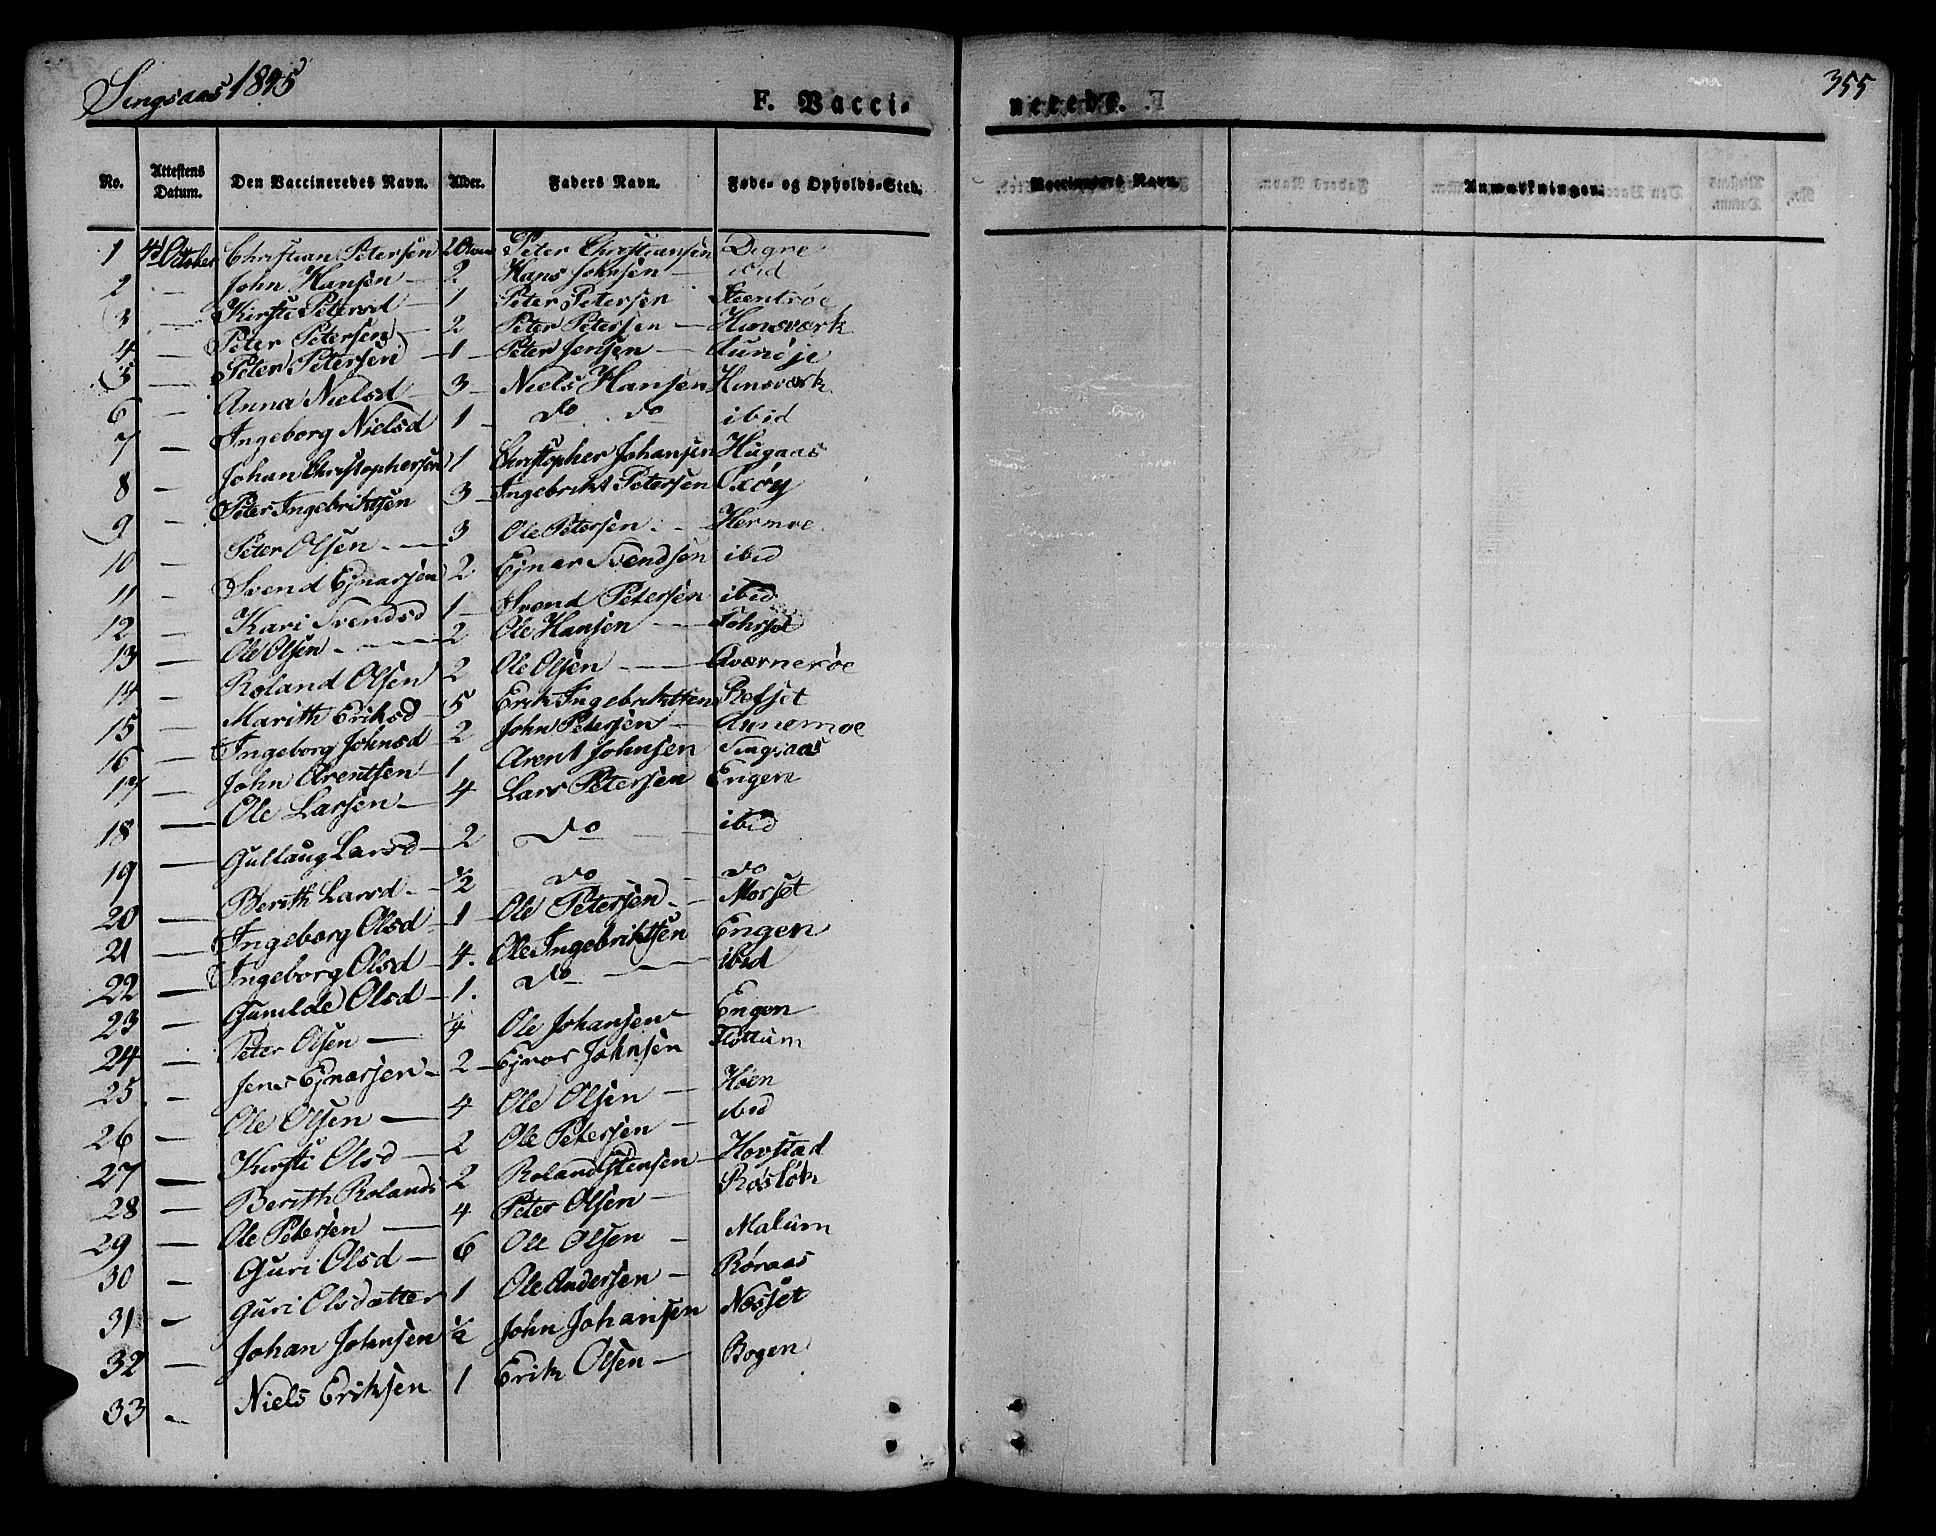 Singsaas 1845
355
F. Vacci-
nerede.
No. Attestens Datum. Den Vaccineredes Navn. Alder. Faders Navn. Føde- og Opholds-Sted. Vaccinateurs Navn. Anmærkninger.
1 4d October Christian Petersen 2 Peter Christiansen Digre
2 — John Hansen — 2 Hans Johnsen — ibid
3 — Kirsti Petersd — 1 Peter Petersen Steentrøe
4 — Peter Petersen — 2 Peter Petersen — Hinsværk
5 — Peter Petersen — 1 — Peter Jensen —
6 — Anna Nielsd — 3 — Niels Hansen Hinsværk
7 — Ingeborg Nielsd 1 — do do ibid
8 — Johan Christophersen 1 Christopher Johansen Hugaas
9 — Peter Ingebriktsen 3 — Ingebrikt Petersen Oxøy
10 — Peter Olsen — 3 Ole Petersen — Hermoe
11 — Svend Ejnarsen 2 Ejnar Svendsen ibid
12 — Kari Svendsd 1 — Svend Petersen ibid
13 — Ole Olsen — 2 Ole Hansen —
14 — Roland Olsen 2 Ole Olsen — Qværnerøe
15 — Marith Eriksd 5 Erik Ingebriktsen Refset
16 — Ingeborg Johnsd 2 John Petersen — Annemoe
17 — John Arentsen — 1 Arent Johnsen Singsaas
18 — Ole Larsen — 4 Lars Petersen Engen
19 — Gullaug Larsd — 2 do — ibid
20 — Berith Larsd — 1/2 do — do
21 — Ingeborg Olsd — 1 — Ole Petersen — Morset
22 — Ingeborg Olsd — 4. Ole Ingebriktsen Engen
23 — Gunilde Olsd — 1. do — ibid
24 — Peter Olsen — 1/4 Ole Johansen — Engen
25 — Jens Ejnarsen — 2 — Ejnar Johnsen Flottum
26 — Ole Olsen — 4 Ole Olsen — Hoen
27 — Kirsti Olsd — 2 Ole Petersen — ibid
28 — Berith Rolands 2 Roland Stensen — Hovstad
29 — Ole Petersen — 4 Peter Olsen — Røsløk
30 — Guri Olsd — 6 Ole Olsen — Malum
31 — Guri Olsdatter 1 Ole Andersen — Røraas
32 — Johan Johnsen 1/2 John Johansen Næsset
33 — Niels Eriksen 1 Erik Olsen — Bogen